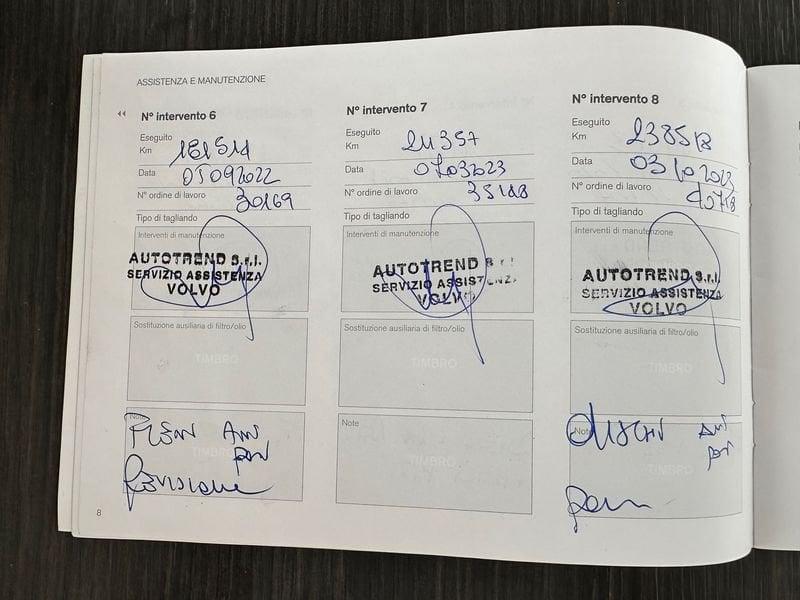 ASSISTENZA E MANUTENZIONE
N° intervento 6
Eseguito
Km 181511
Data 05092022
N° ordine di lavoro 30169
Tipo di tagliando
Interventi di manutenzione
AUTOTREND S.r.l.
SERVIZIO ASSISTENZA
VOLVO
Sostituzione ausiliaria di filtro/olio
TIMBRO
Note
TIMBRO
REVISIONE
8
N° intervento 7
Eseguito
Km 211357
Data 07032023
N° ordine di lavoro
Tipo di tagliando
Interventi di manutenzione
AUTOTREND S.r.l.
SERVIZIO ASSISTENZA
VOLVO
Sostituzione ausiliaria di filtro/olio
TIMBRO
Note
TIMBRO
N° intervento 8
Eseguito
Km
Data 03102023
N° ordine di lavoro
Tipo di tagliando
Interventi di manutenzione
AUTOTREND S.r.l.
SERVIZIO ASSISTENZA
VOLVO
Sostituzione ausiliaria di filtro/olio
TIMBRO
Note
DISCHI
TIMBRO